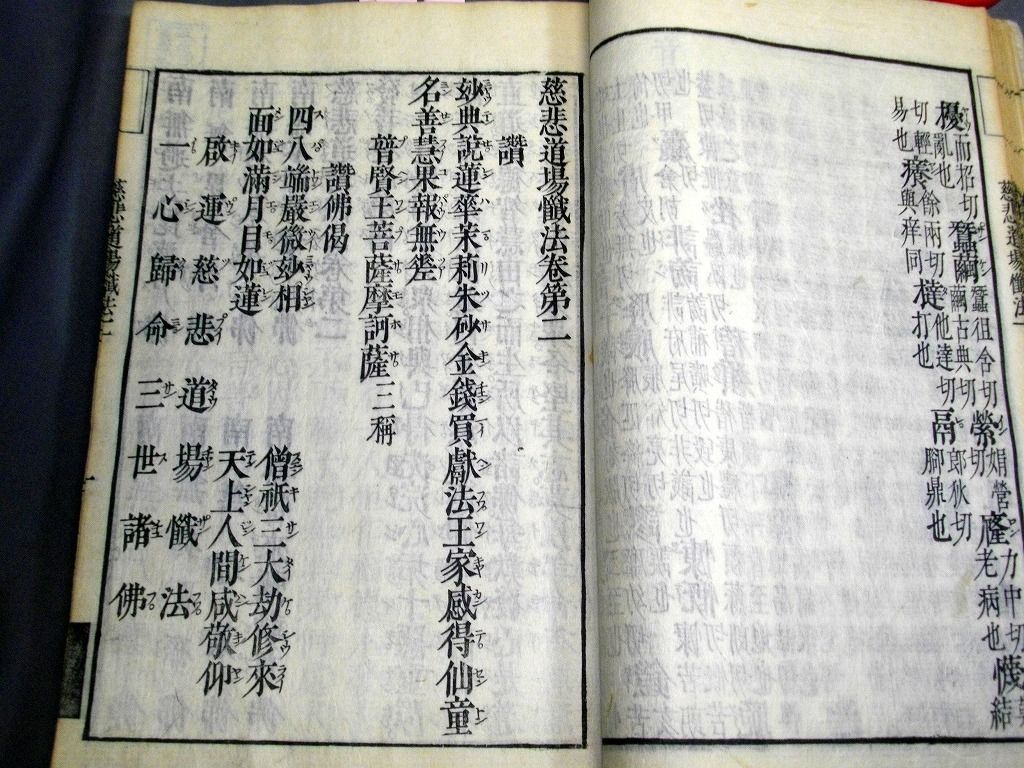 擾而招切
亂也
蠶繭
蠶徂含切
繭古典切
縈娟營切
癃力中切
老病也
切輕
易也
癢餘兩切
與痒同
撻他達切
打也
鬲郎狄切
脚鼎也
慈悲道場懺法卷第二
讚
妙典說蓮華茉莉朱砂金錢買獻法王家感得仙童
名善慧果報無差
普賢王菩薩摩訶薩三稱
讚佛偈
四八端嚴微妙相 僧祇三大劫修來
面如滿月目如蓮 天上人間咸敬仰
啟運慈悲道場懺法
一心歸命三世諸佛
慈悲道場懺法二